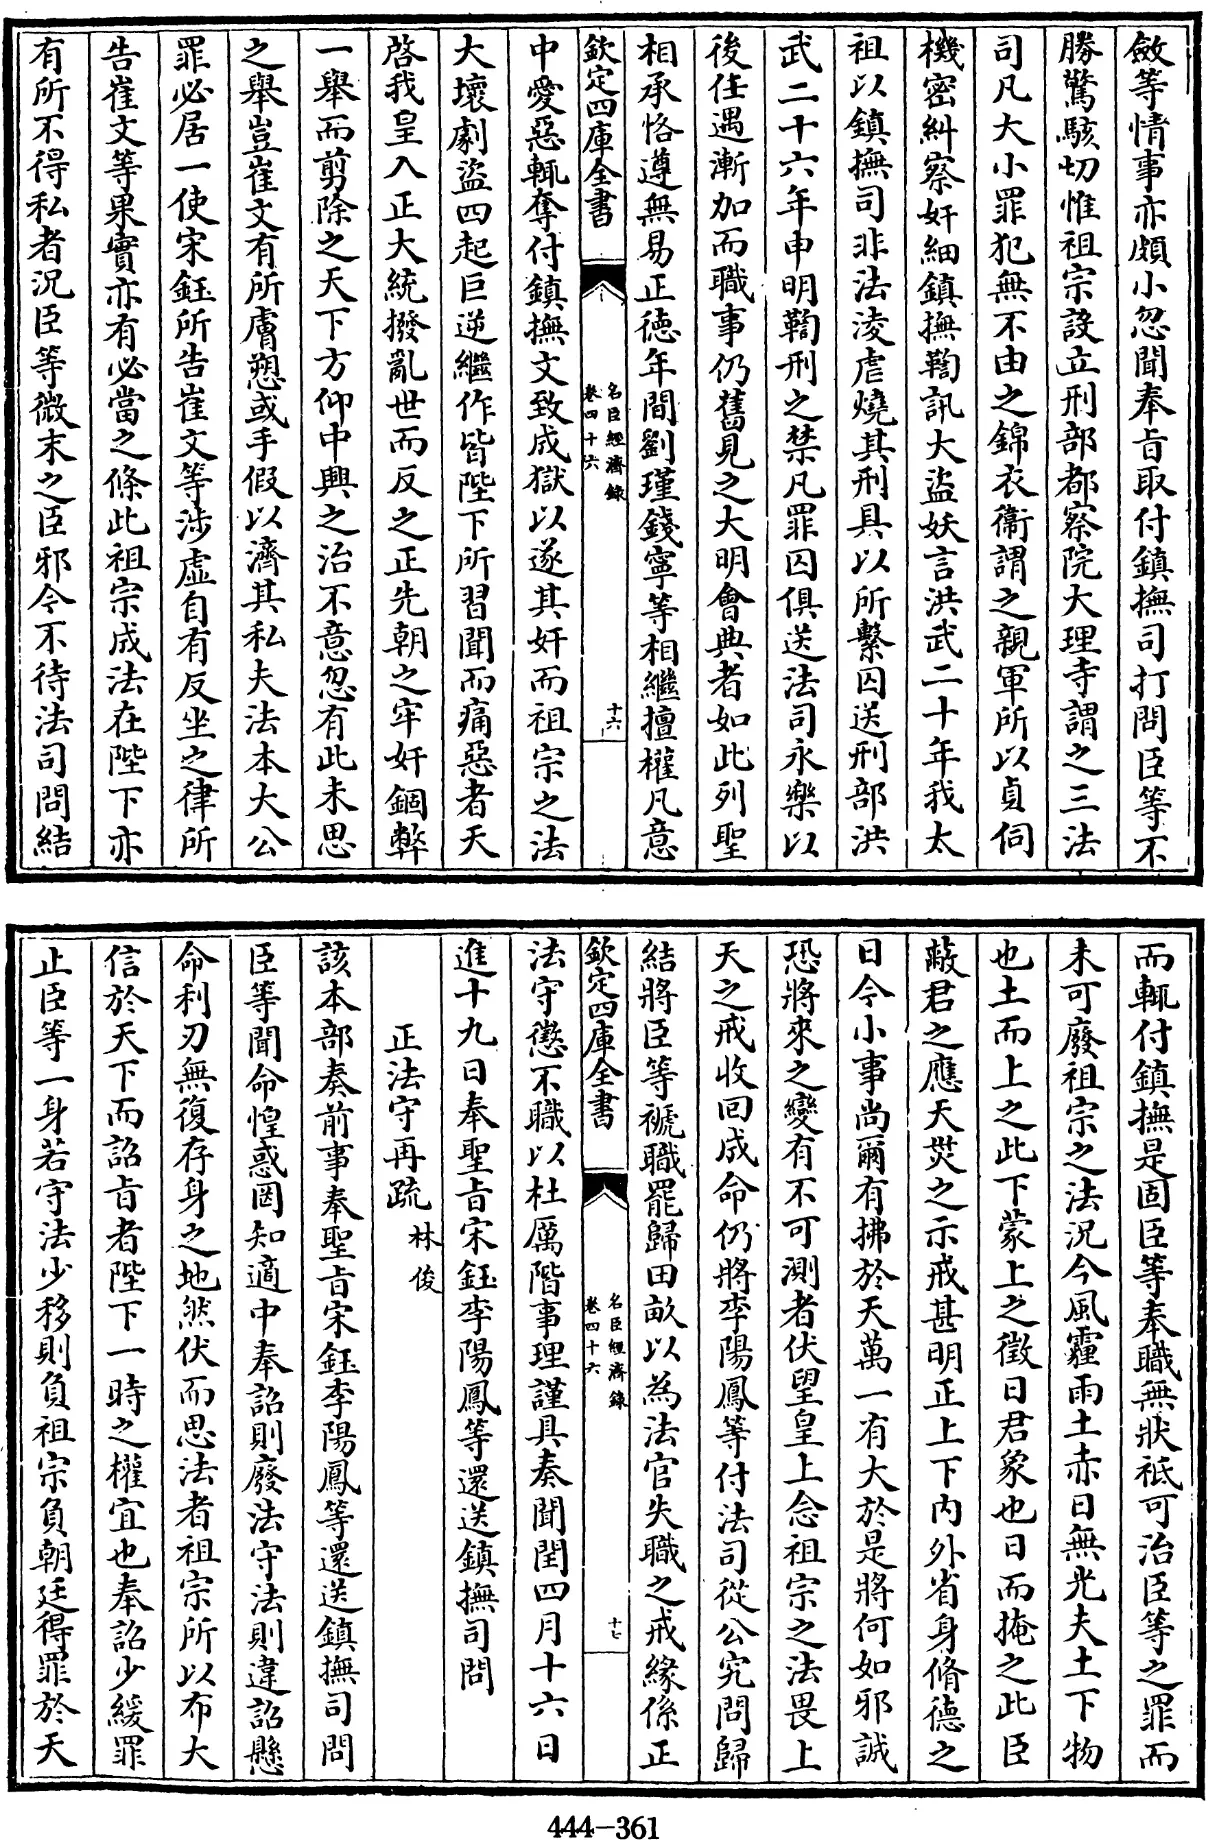 斂等情事亦頗小忽聞奉旨取付鎮撫司打問臣等不
勝驚駭切惟祖宗設立刑部都察院大理寺謂之三法
司凡大小罪犯無不由之錦衣衞謂之親軍所以貞伺
機密糾察奸細鎮撫鞫訊大盜妖言洪武二十年我太
祖以鎮撫司非法凌虐燒其刑具以所繫囚送刑部洪
武二十六年申明鞫刑之禁凡罪囚俱送法司永樂以
後任遇漸加而職事仍舊見之大明會典者如此列聖
相承恪遵無易正徳年間劉瑾錢寧等相繼擅權凡意
欽定四庫全書
名臣經濟錄
卷四十六
十六
中愛惡輒奪付鎮撫文致成獄以遂其奸而祖宗之法
大壞劇盜四起巨逆繼作皆陛下所習聞而痛惡者天
啓我皇入正大統撥亂世而反之正先朝之牢奸錮弊
一舉而剪除之天下方仰中興之治不意忽有此未思
之舉豈崔文有所膚愬或手假以濟其私夫法本大公
罪必居一使宋鈺所告崔文等涉虛自有反坐之律所
告崔文等果實亦有必當之條此祖宗成法在陛下亦
有所不得私者況臣等微末之臣邪今不待法司問結
而輒付鎮撫是固臣等奉職無狀祗可治臣等之罪而
未可廢祖宗之法況今風霾雨土赤日無光夫土下物
也土而上之此下蒙上之徵日君象也日而掩之此臣
蔽君之應天災之示戒甚明正上下内外省身脩德之
日今小事尚爾有拂於天萬一有大於是將何如邪誠
恐將來之變有不可測者伏望皇上念祖宗之法畏上
天之戒收回成命仍將李陽鳳等付法司從公究問歸
結將臣等褫職罷歸田畝以為法官失職之戒緣係正
欽定四庫全書
名臣經濟錄
卷四十六
十七
法守懲不職以杜厲階事理謹具奏聞閏四月十六日
進十九日奉聖旨宋鈺李陽鳳等還送鎮撫司問
正法守再疏 林俊
該本部奏前事奉聖旨宋鈺李陽鳳等還送鎮撫司問
臣等聞命惶惑罔知適中奉詔則廢法守法則違詔懸
命利刃無復存身之地然伏而思法者祖宗所以布大
信於天下而詔旨者陛下一時之權宜也奉詔少緩罪
止臣等一身若守法少移則負祖宗負朝廷得罪於天
444-361